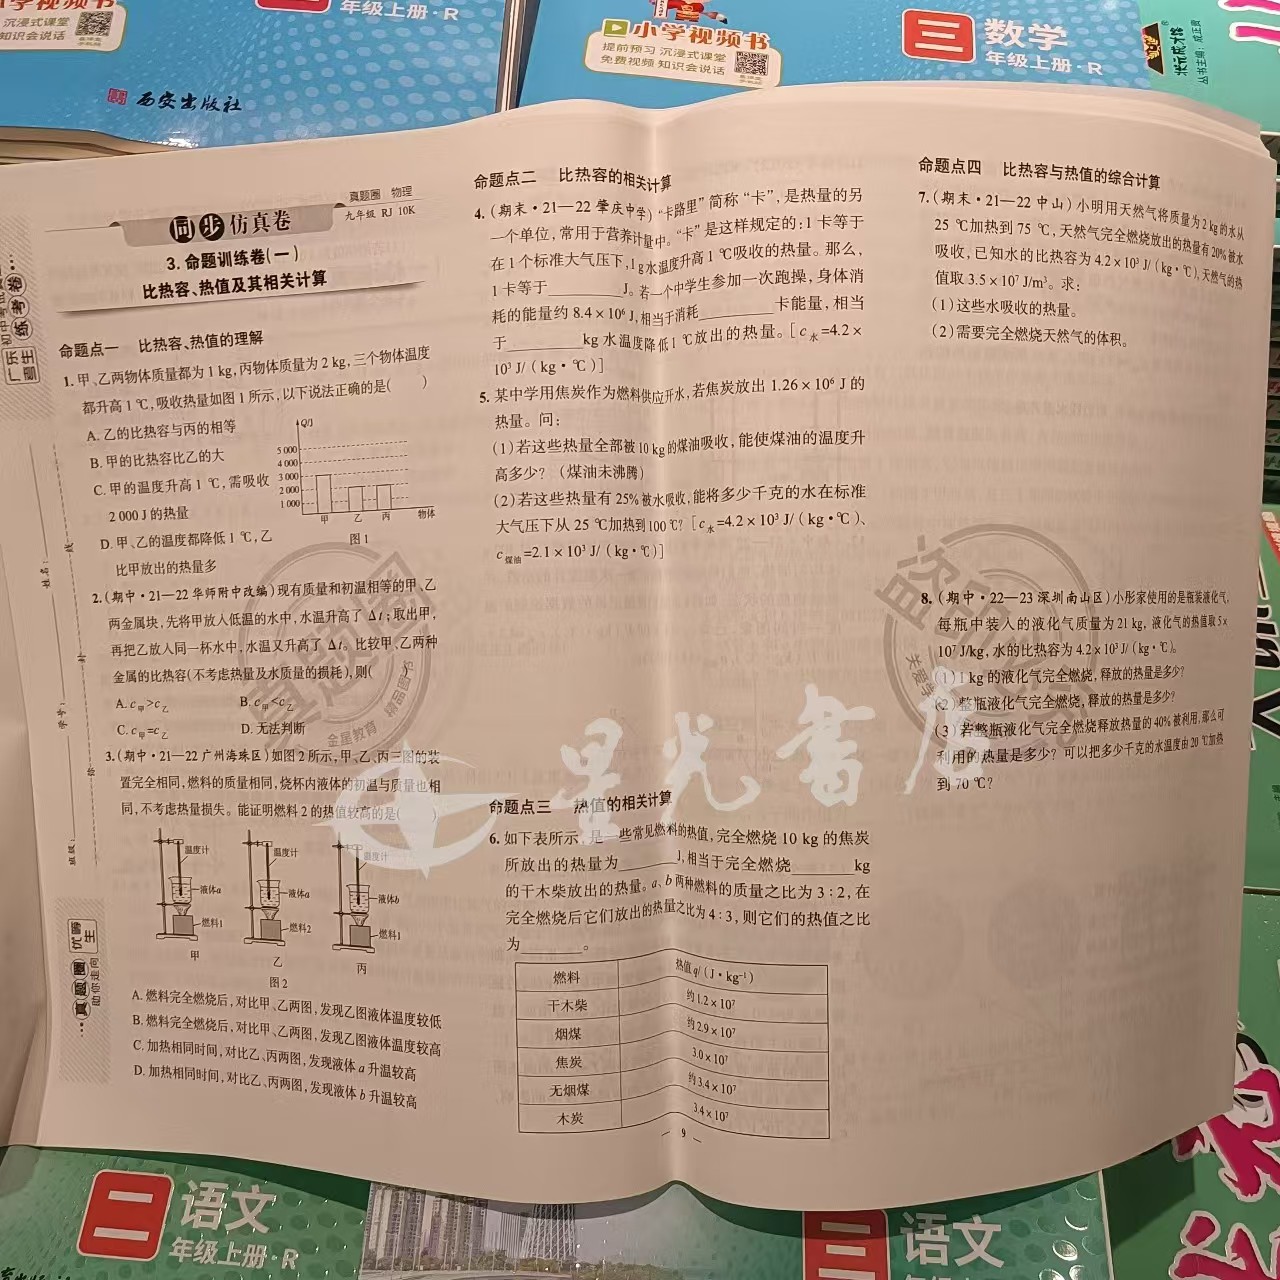 小学视频书
沉浸式课堂
知识会说话
年级上册·R
西安出版社
小学视频书
提前预习 沉浸式课堂
免费视频 知识会说话
三
数学
年级上册·R
状元成才路
真题圈 物理
九年级 RJ 10K
同步仿真卷
3. 命题训练卷(一)
比热容、热值及其相关计算
命题点一 比热容、热值的理解
1. 甲、乙两物体质量都为 1 kg, 丙物体质量为 2 kg, 三个物体温度
都升高 1 ℃, 吸收热量如图 1 所示, 以下说法正确的是( )
A. 乙的比热容与丙的相等
B. 甲的比热容比乙的大
C. 甲的温度升高 1 ℃, 需吸收
2 000 J 的热量
D. 甲、乙的温度都降低 1 ℃, 乙
比甲放出的热量多
Q/J
5 000
4 000
3 000
2 000
1 000
甲 乙 丙 物体
图 1
2. (期中·21—22 华师附中改编) 现有质量和初温相等的甲、乙
两金属块, 先将甲放入低温的水中, 水温升高了 Δt; 取出甲,
再把乙放入同一杯水中, 水温又升高了 Δt。比较甲、乙两种
金属的比热容(不考虑热量及水质量的损耗), 则( )
A. c甲>c乙 B. c甲<c乙
C. c甲=c乙 D. 无法判断
3. (期中·21—22 广州海珠区) 如图 2 所示, 甲、乙、丙三图的装
置完全相同, 燃料的质量相同, 烧杯内液体的初温与质量也相
同, 不考虑热量损失。能证明燃料 2 的热值较高的是( )
温度计 温度计 温度计
液体a 液体a 液体b
燃料1 燃料2 燃料1
甲 乙 丙
图 2
A. 燃料完全燃烧后, 对比甲、乙两图, 发现乙图液体温度较低
B. 燃料完全燃烧后, 对比甲、乙两图, 发现乙图液体温度较高
C. 加热相同时间, 对比乙、丙两图, 发现液体 a 升温较高
D. 加热相同时间, 对比乙、丙两图, 发现液体 b 升温较高
命题点二 比热容的相关计算
4. (期末·21—22 肇庆中学) “卡路里”简称“卡”, 是热量的另
一个单位, 常用于营养计量中。“卡”是这样规定的: 1 卡等于
在 1 个标准大气压下, 1 g 水温度升高 1 ℃吸收的热量。那么,
1 卡等于________J。若一个中学生参加一次跑操, 身体消
耗的能量约 8.4×10⁶ J, 相当于消耗________卡能量, 相当
于________kg 水温度降低 1 ℃放出的热量。[c水=4.2×
10³ J/(kg·℃)]
5. 某中学用焦炭作为燃料供应开水, 若焦炭放出 1.26×10⁶ J 的
热量。问:
(1) 若这些热量全部被 10 kg 的煤油吸收, 能使煤油的温度升
高多少? (煤油未沸腾)
(2) 若这些热量有 25% 被水吸收, 能将多少千克的水在标准
大气压下从 25 ℃加热到 100 ℃? [c水=4.2×10³ J/(kg·℃)、
c煤油=2.1×10³ J/(kg·℃)]
命题点三 热值的相关计算
6. 如下表所示, 是一些常见燃料的热值, 完全燃烧 10 kg 的焦炭
所放出的热量为______J, 相当于完全燃烧______kg
的干木柴放出的热量。a、b 两种燃料的质量之比为 3∶2, 在
完全燃烧后它们放出的热量之比为 4∶3, 则它们的热值之比
为______。
燃料 热值 q/(J·kg⁻¹)
干木柴 约1.2×10⁷
烟煤 约2.9×10⁷
焦炭 3.0×10⁷
无烟煤 约3.4×10⁷
木炭 3.4×10⁷
— 9 —
命题点四 比热容与热值的综合计算
7. (期末·21—22 中山) 小明用天然气将质量为 2 kg 的水从
25 ℃加热到 75 ℃, 天然气完全燃烧放出的热量有 20% 被水
吸收, 已知水的比热容为 4.2×10³ J/(kg·℃), 天然气的热
值取 3.5×10⁷ J/m³。求:
(1) 这些水吸收的热量。
(2) 需要完全燃烧天然气的体积。
8. (期中·22—23 深圳南山区) 小彤家使用的是瓶装液化气,
每瓶中装入的液化气质量为 21 kg, 液化气的热值取 5×
10⁷ J/kg, 水的比热容为 4.2×10³ J/(kg·℃)。
(1) 1 kg 的液化气完全燃烧, 释放的热量是多少?
(2) 整瓶液化气完全燃烧, 释放的热量是多少?
(3) 若整瓶液化气完全燃烧释放热量的 40% 被利用, 那么可
利用的热量是多少? 可以把多少千克的水温度由 20 ℃加热
到 70 ℃?
练考卷
姓名:
学号:
班级:
线
封
密
真题圈
助你走向
优等生
真题圈
金星教育 精品图书
星光书店
二
语文
年级上册·R
二
语文
年级上册·R